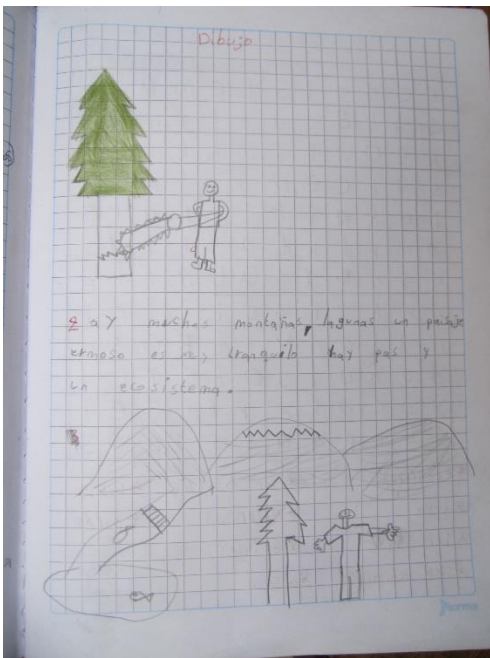 Dibujo
ay muchas montañas, lagunas un paisaje
ermoso es muy tranquilo hay pas y
un ecosistema.
Norma